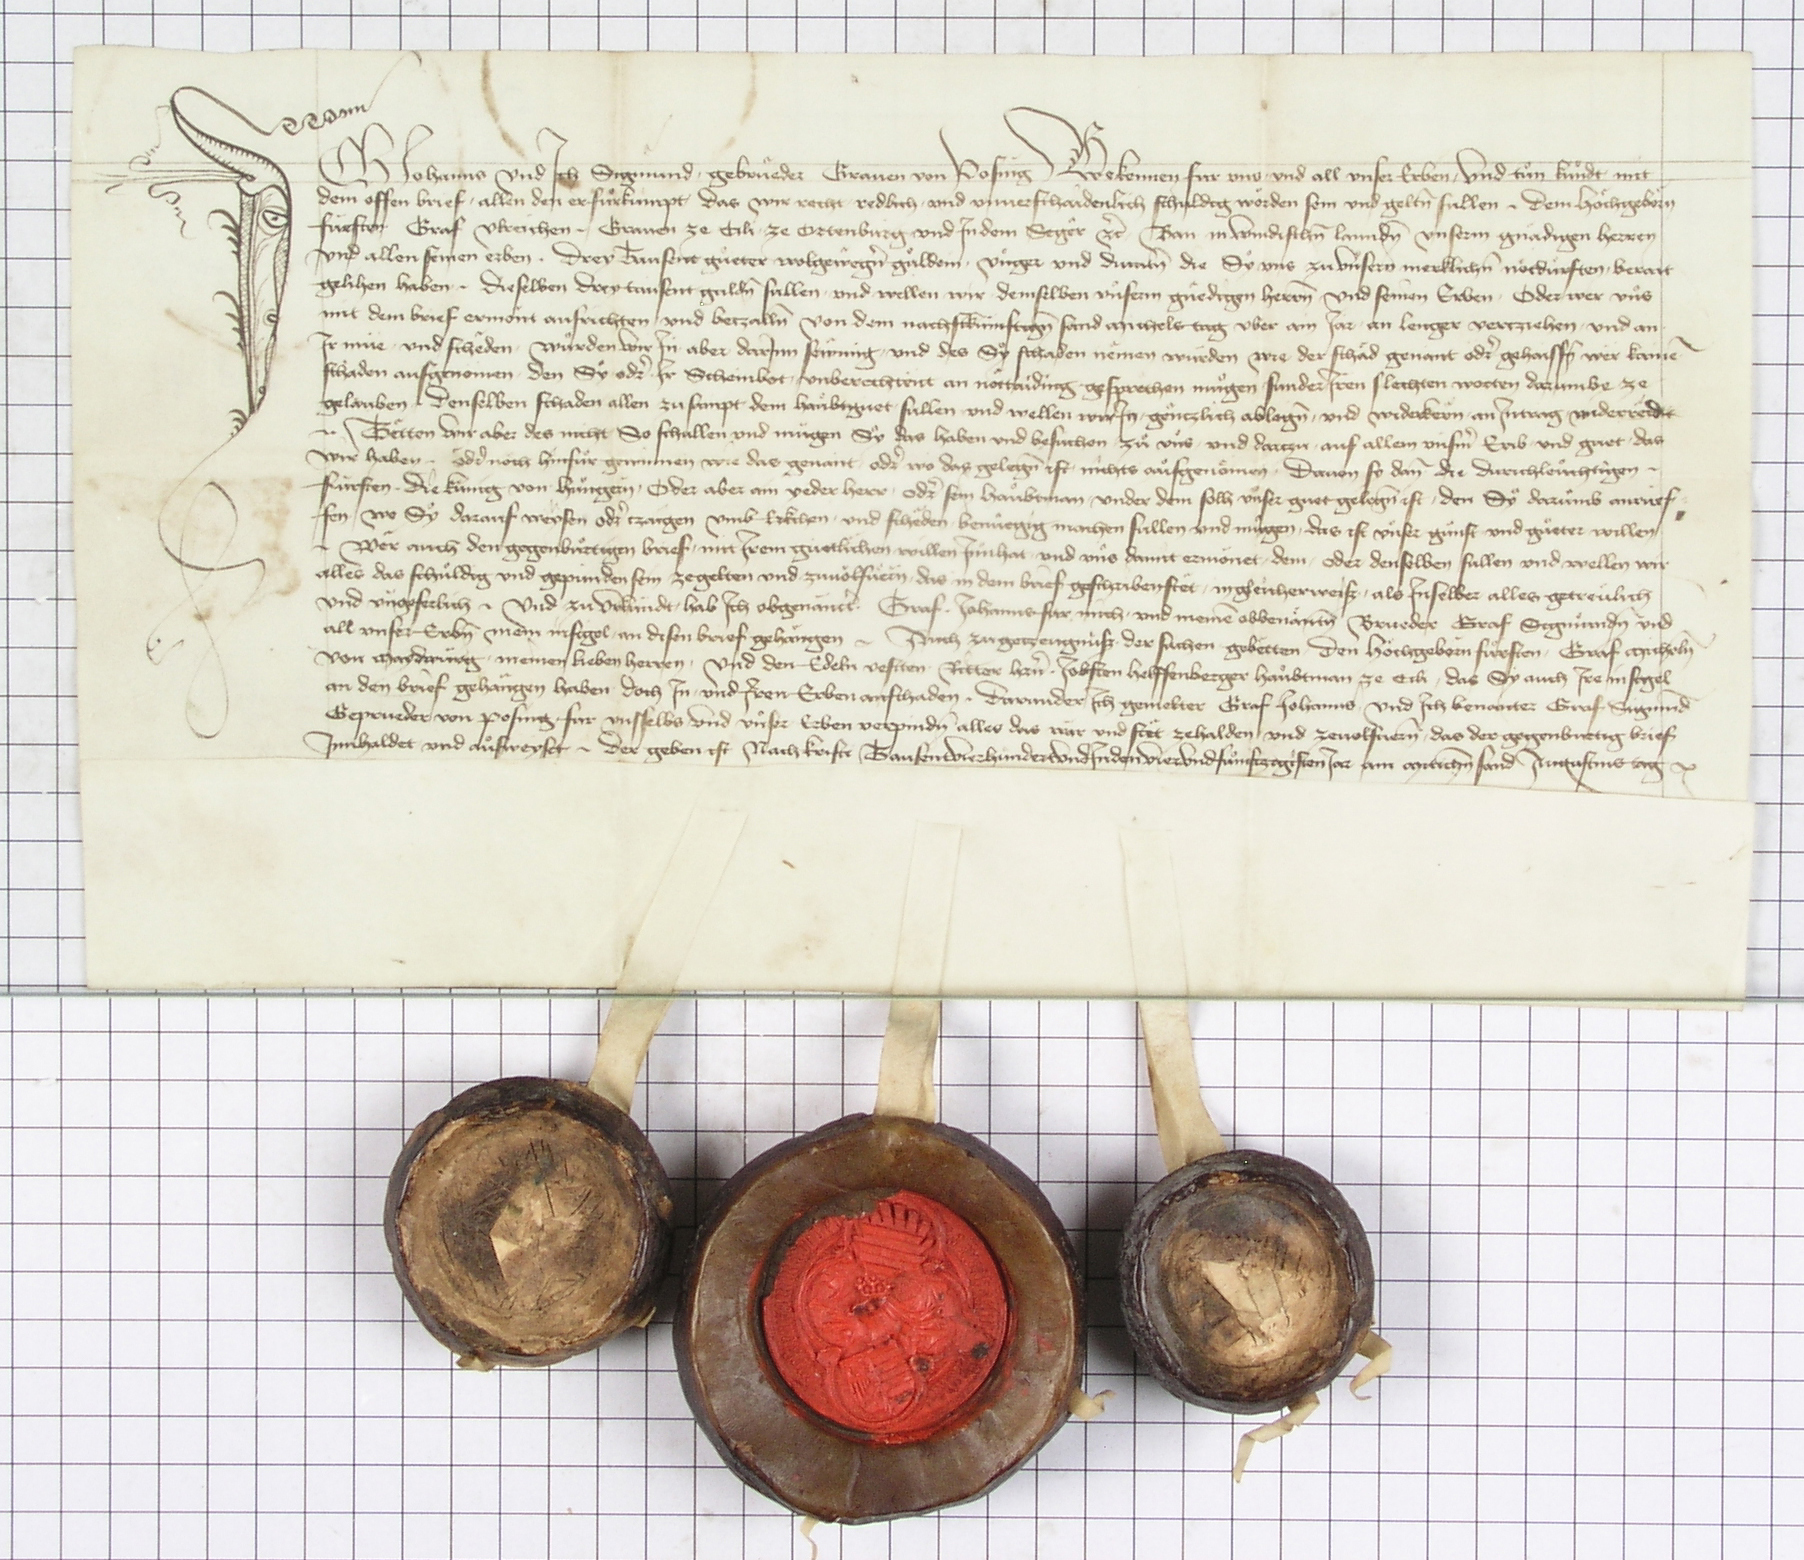 Johanns vnd Ich Sigmund gebrueder Grauen von Posing Bekennen fur vns vnd all vnser Erben vnd tun kundt mit
dem offen brief allen den er furkumpt das wir recht redlich vnd vnuerschaidenlich schuldig worden sein vnd geltn sullen dem Hochgeborn
fursten Graf Vlreichen Grauen ze Cili ze Ortenburg vnd In dem Seger Ban in windischn lanndn vnserm gnadigen herren
vnd allen seinen erben drey Tausent gueter wolgewegn guldein vnger vnd ducatn die Sy vns zu vnsern merklichn notdurften berait
gelihen haben dieselben drey tausent guldn sullen vnd wellen wir demselben vnserm gnedigen herrn vnd seinen Erben Oder wer vns
mit dem brief ermont ausrichten vnd betzalln von dem nachstkunftign sand michels tag vber ain Jar an lenger vertziehen vnd an
Ir mue vnd scheden wurden wir In aber darInn sewmig vnd des Sy schaden nemen wurden wie der schad genant odr gehaissn wer kainen
schaden ausgenomen den Sy odr Ir Scheinbot vnberechtent an nottaiding gesprechen mugen sunder Iren slechten worten darumbe ze
gelauben denselben schaden allen zusampt dem haubtguet sullen vnd wellen wir In gentzlich ablegn vnd widerkern an Intrag vnd
Tetten wir aber des nicht So schullen vnd mugen Sy das haben vnd besuchen zu vns vnd dartzu auf allem vnserm Erb vnd guet das
wir haben odr noch hinfur gewinnen wie das genant odr wo das gelegn ist nichts ausgenomen Dauon sy dann die durichleuchtigen
fursten die kunig von Hungern Oder aber ain yeder herr odr sein haubtman vnder dem solh vnser guet gelegn ist den Sy darumb anrief
fen wo Sy darauf weysen odr tzaigen vmb Erkchen vnd scheden benuegig machen sullen vnd mugen das ist vnser gunst vnd gueter willen
Wer auch den gegenburtigen brief mit Irem guetlichen willen Innhat vnd vns damit ermonet dem oder denselben sullen vnd wellen wir
alles das schuldig vnd gepunden sein zegelten vnd zuuolfuern das in dem brief geschriben stet in gleicherweis als In selber alles getreulich
vnd vngeferlich vnd zu vrkundt hab Ich obgenanter Graf Johanns fur mich vnd meinen obbenantn Brueder Graf Sigmundn vnd
all vnser Erbn mein insigel an disen brief gehangen Auch zu getzeugnuss der sachen gebetten den Hochgeborn fursten Graf micheln
von maydwurg meinen lieben herren vnd den Edeln vesten Ritter hern Jobsten helffenberger haubtman ze Cili das Sy auch Ire insigel
an den brief gehangen haben doch In vnd Iren Erben an schaden Darunder Ich gemelter Graf Johanns vnd Ich benanter Graf Sigmund
Geprueder von posing fur vnsselbs vnd vnser Erben verpindn alles das war vnd stet zehalden vnd zeuolfuern das der gegenburtig brief
Innhaldet vnd ausweyset Der geben ist Nach kristi Tausent vierhundert vnd In den vier vnd funftzigisten Jar am mitichn sand Augustins tag